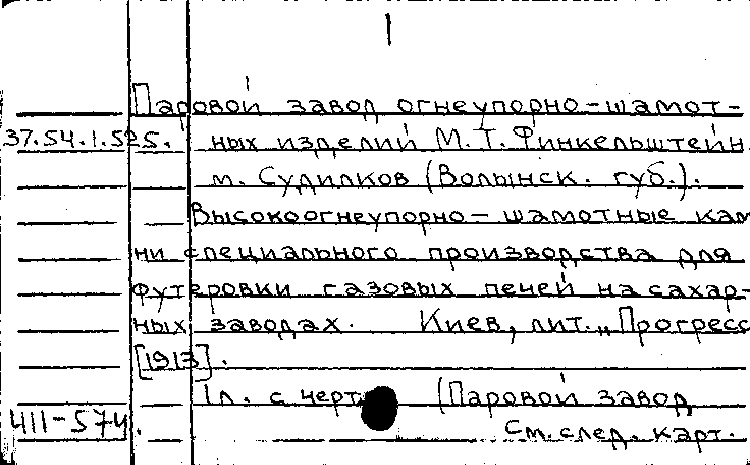 Паровой завод огнеупорно-шамот-
37.54.1.525. ных изделий М.Т. Финкельштейн.
м. Судилков (Волынск. губ.).
Высокоогнеупорно-шамотные кам
ни специального производства для
футеровки газовых печей на сахар-
ных заводах. Киев, лит. „Прогресс
[1913].
1л. с черт. (Паровой завод
411-574. См. след. карт.